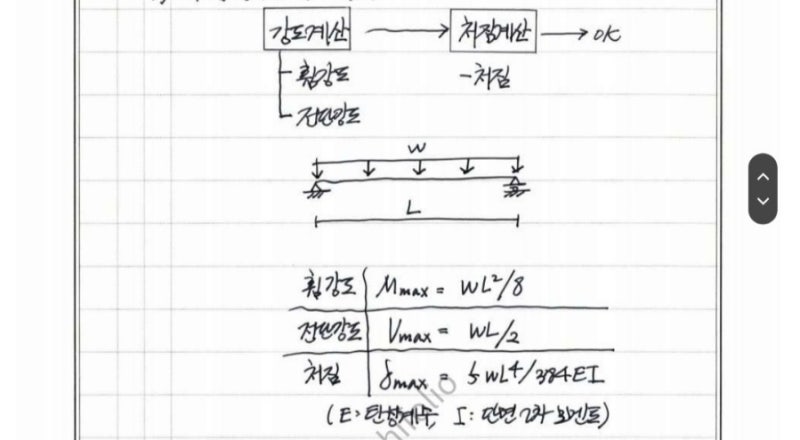 강도계산 → 처짐계산 → OK
- 휨강도 - 처짐
- 전단강도
W
L
휨강도 Mmax = WL²/8
전단강도 Vmax = WL/2
처짐 δmax = 5WL⁴/384EI
(E: 탄성계수, I: 단면 2차 모멘트)